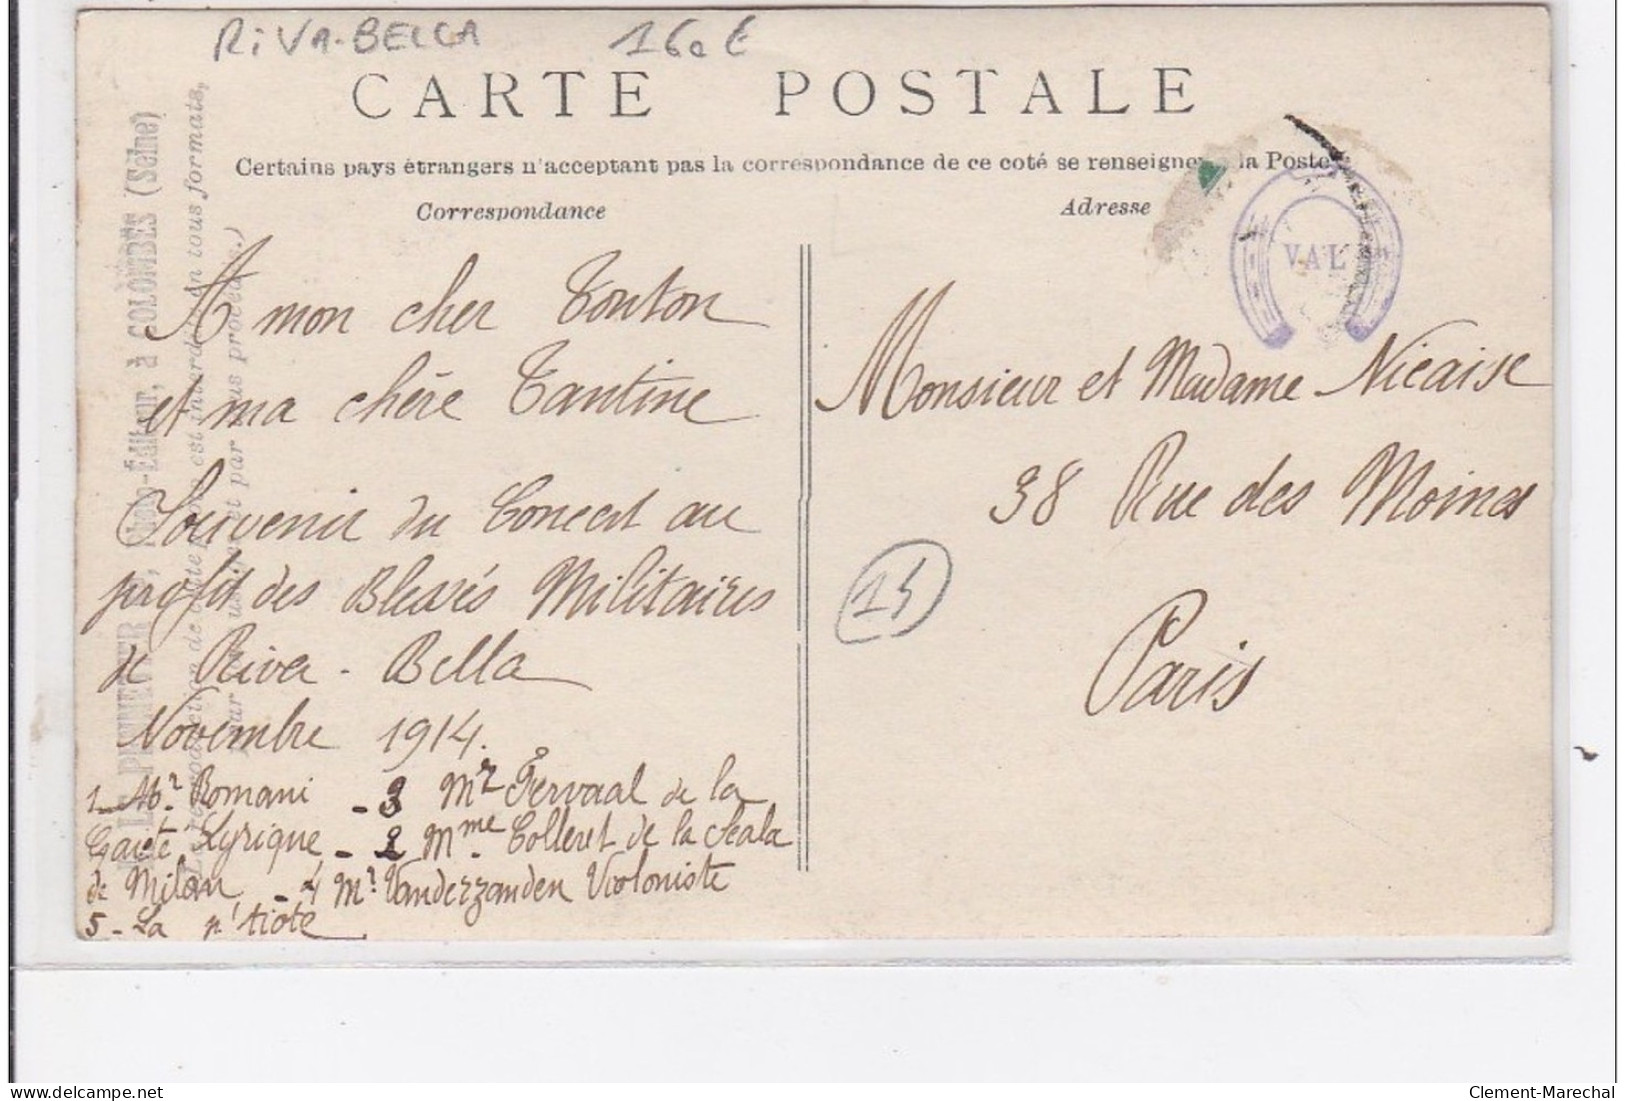 RiVA-BELLA 160 €
CARTE POSTALE
Certains pays étrangers n'acceptant pas la correspondance de ce coté se renseigner la Poste
Correspondance
Adresse
VAL
A mon cher Tonton
et ma chère Tantine
Souvenir du Concert au
profit des Blessés Militaires
de Riva-Bella
Novembre 1914.
1 - Mr. Romani - 3 Mr Fervaal de la
Gaité Lyrique - 2 Mme Colleret de la Scala
de Milan - 4 Mr. Vanderzanden Violoniste
5 - La p'tiote
Monsieur et Madame Nicaise
38 Rue des Moines
Paris
14
Photo-Éditeur, à COLOMBES (Seine)
La reproduction de cette est interdite en tous formats,
par tous procédés.)
Clement-Marechal